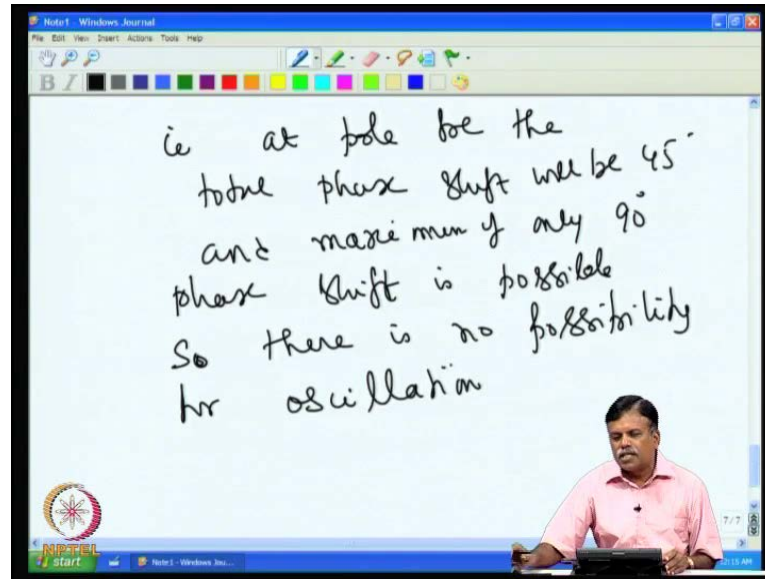 Note1 - Windows Journal
File Edit View Insert Actions Tools Help
B I
ie at pole the
total phase shift will be 45°
and maximum of only 90°
phase shift is possible
So there is no possibility
for oscillation
7/7
NPTEL
start
Note1 - Windows Jou...
12:15 AM